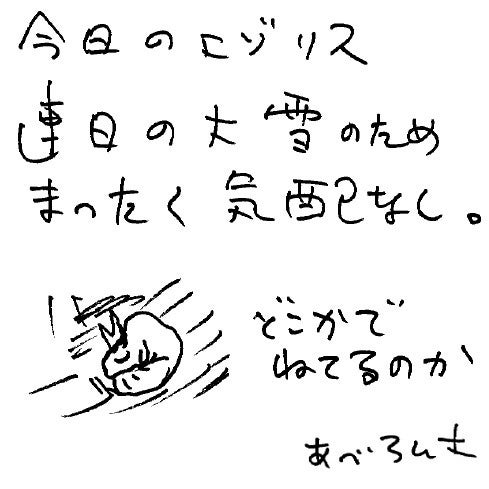 今日のエゾリス
連日の大雪のため
まったく気配なし。
どこかで
ねてるのか
あべろんち